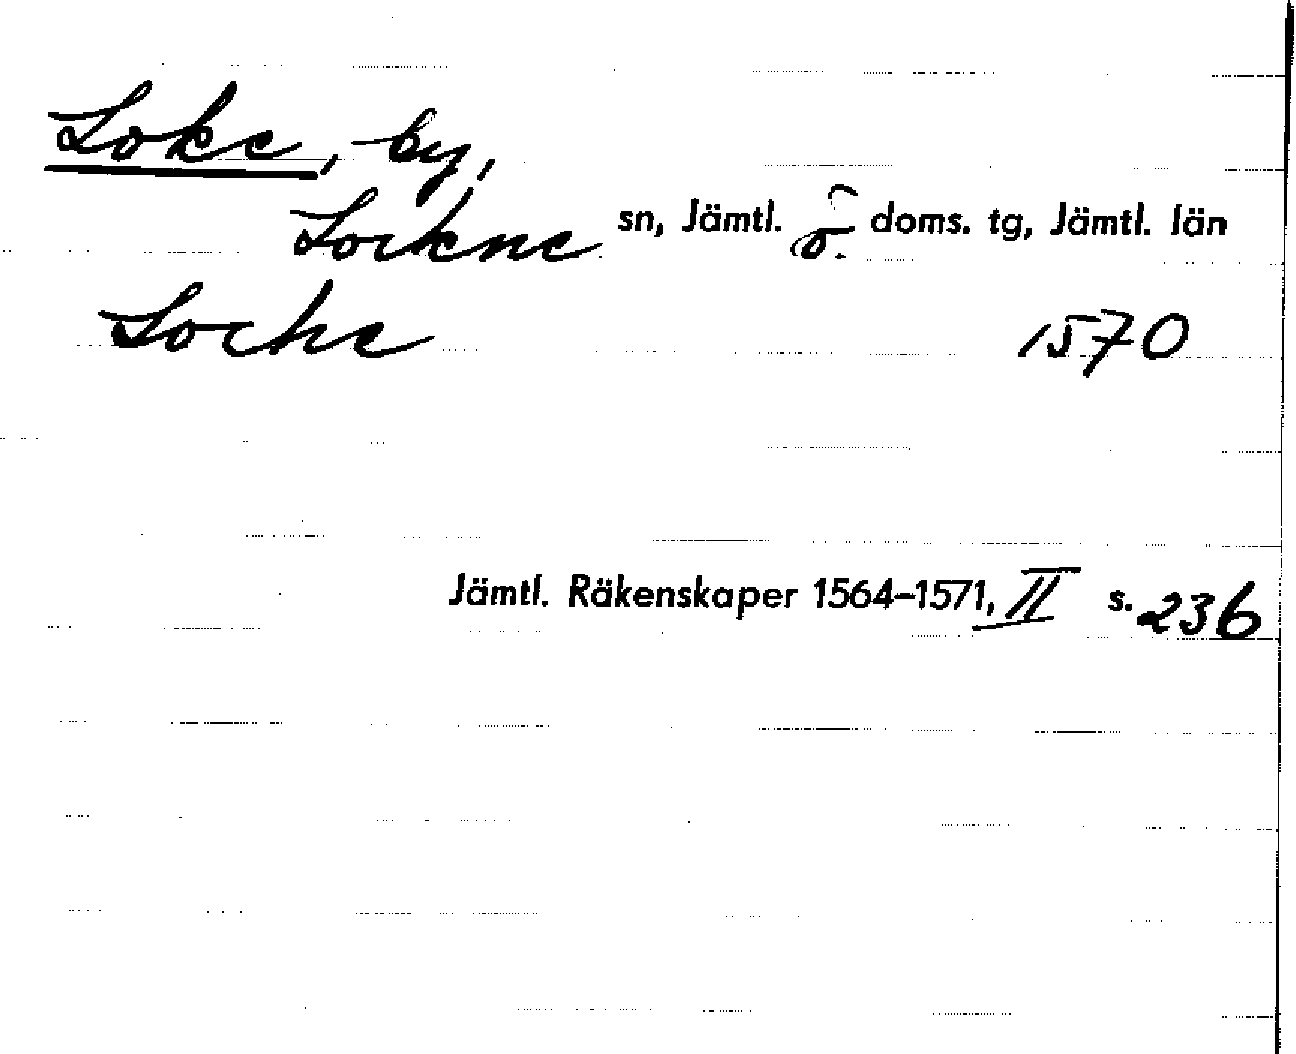 Loke, by,
Lockne sn, Jämtl. ö. doms. tg, Jämtl. län
Locke 1570
Jämtl. Räkenskaper 1564–1571, II s. 236